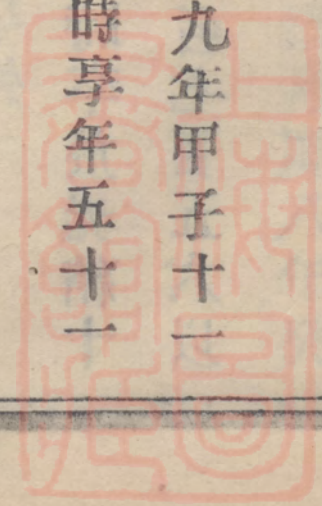 九年甲子十一
時享年五十一